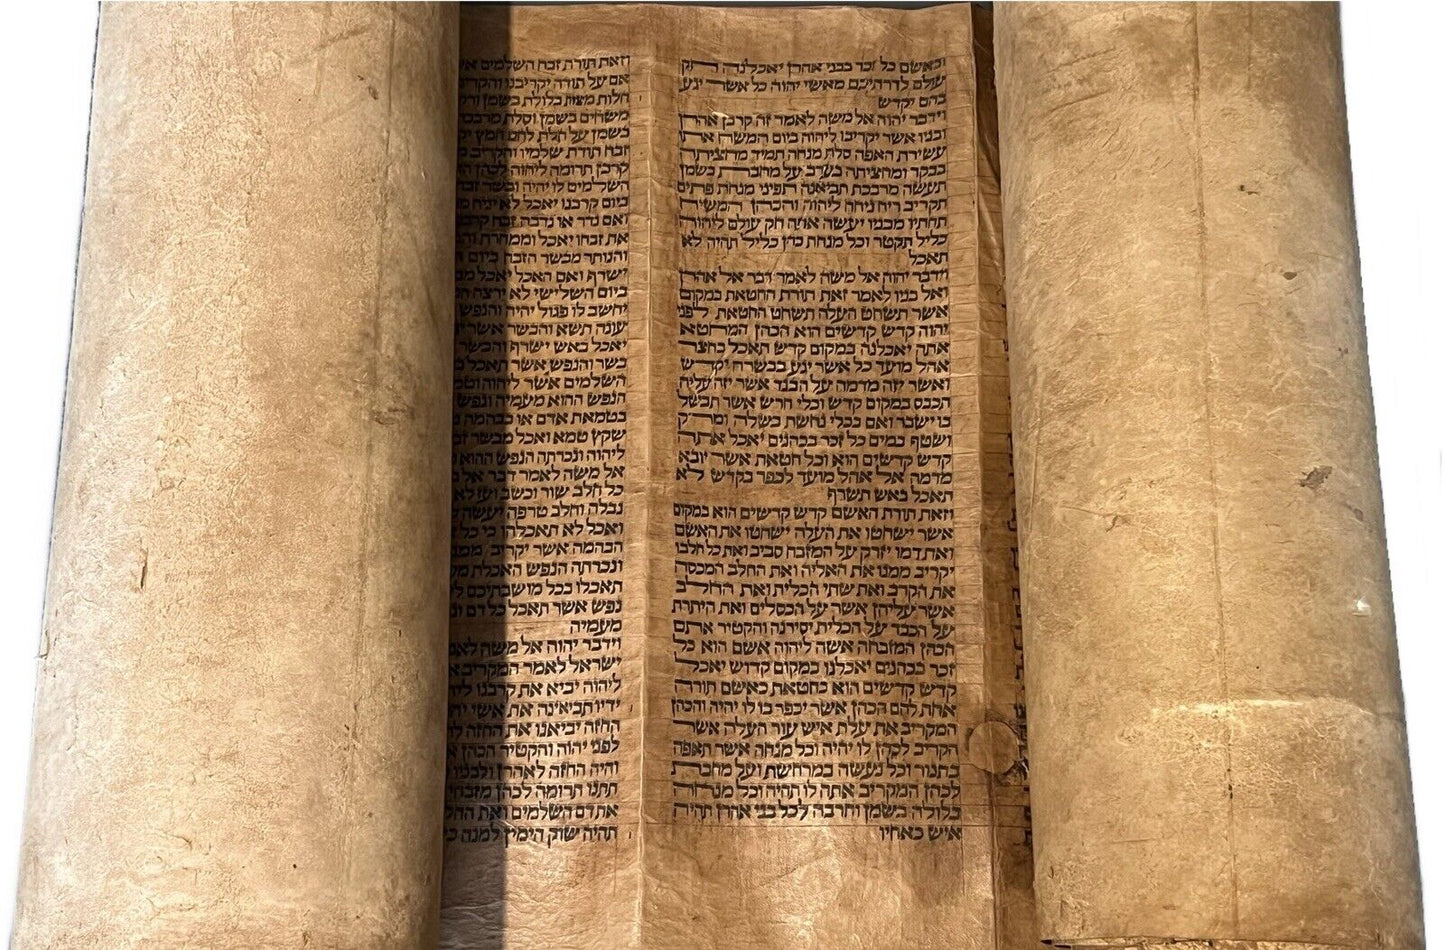 וכאשם כל זכר בבני אהרן יאכלנה חק
עולם לדרתיכם מאשי יהוה כל אשר יגע
בהם יקדש
וידבר יהוה אל משה לאמר זה קרבן אהרן
ובניו אשר יקריבו ליהוה ביום המשח אתו
עשירת האפה סלת מנחה תמיד מחציתה
בבקר ומחציתה בערב על מחבת בשמן
תעשה מרבכת תביאנה תפיני מנחת פתים
תקריב ריח ניחח ליהוה והכהן המשיח
תחתיו מבניו יעשה אתה חק עולם ליהוה
כליל תקטר וכל מנחת כהן כליל תהיה לא
תאכל
וידבר יהוה אל משה לאמר דבר אל אהרן
ואל בניו לאמר זאת תורת החטאת במקום
אשר תשחט העלה תשחט החטאת לפני
יהוה קדש קדשים הוא הכהן המחטא
אתה יאכלנה במקום קדש תאכל בחצר
אהל מועד כל אשר יגע בבשרה יקדש
ואשר יזה מדמה על הבגד אשר יזה עליה
תכבס במקום קדש וכלי חרש אשר תבשל
בו ישבר ואם בכלי נחשת בשלה ומרק
ושטף במים כל זכר בכהנים יאכל אתה
קדש קדשים הוא וכל חטאת אשר יובא
מדמה אל אהל מועד לכפר בקדש לא
תאכל באש תשרף
וזאת תורת האשם קדש קדשים הוא במקום
אשר ישחטו את העלה ישחטו את האשם
ואת דמו יזרק על המזבח סביב ואת כל חלבו
יקריב ממנו את האליה ואת החלב המכסה
את הקרב ואת שתי הכלית ואת החלב
אשר עליהן אשר על הכסלים ואת היתרת
על הכבד על הכלית יסירנה והקטיר אתם
הכהן המזבחה אשה ליהוה אשם הוא כל
זכר בכהנים יאכלנו במקום קדוש יאכל
קדש קדשים הוא כחטאת כאשם תורה
אחת להם הכהן אשר יכפר בו לו יהיה והכהן
המקריב את עלת איש עור העלה אשר
הקריב לכהן לו יהיה וכל מנחה אשר תאפה
בתנור וכל נעשה במרחשת ועל מחבת
לכהן המקריב אתה לו תהיה וכל מנחה
בלולה בשמן וחרבה לכל בני אהרן תהיה
איש כאחיו
וזאת תורת זבח השלמים
אם על תודה יקריבנו והקריב
חלות מצות בלולת בשמן
משחים בשמן וסלת מרבכת
בשמן על חלת לחם חמץ
זבח תודת שלמיו והקריב
קרבן תרומה ליהוה לכהן
השלמים לו יהיה ובשר
ביום קרבנו יאכל לא יניח
ואם נדר או נדבה זבח
את זבחו יאכל וממחרת
והנותר מבשר הזבח ביום
ישרף ואם האכל יאכל
ביום השלישי לא ירצה
יחשב לו פגול יהיה והנפש
עונה תשא והבשר אשר
יאכל באש ישרף והבשר
בשר והנפש אשר תאכל
השלמים אשר ליהוה
הנפש ההוא מעמיה ונפש
בטמאת אדם או בבהמה
שקץ טמא ואכל מבשר
ליהוה ונכרתה הנפש ההוא
אל משה לאמר דבר אל
כל חלב שור וכשב ועז
נבלה וחלב טרפה יעשה
ואכל לא תאכלהו כי כל
הבהמה אשר יקריב
ונכרתה הנפש האכלת
תאכלו בכל מושבתיכם
נפש אשר תאכל כל דם
מעמיה
וידבר יהוה אל משה
ישראל לאמר המקריב
ליהוה יביא את קרבנו
ידיו תביאינה את אשי
החזה יביאנו את החזה
לפני יהוה והקטיר הכהן
והיה החזה לאהרן ולבניו
תתנו תרומה לכהן
את דם השלמים ואת
תהיה שוק הימין למנה